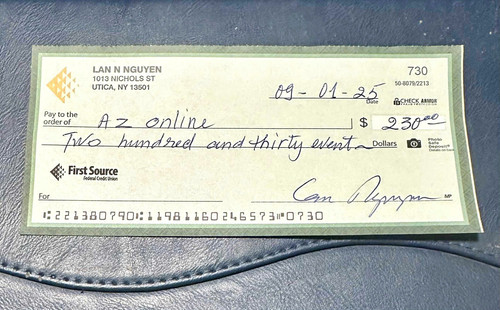 LAN N NGUYEN
1013 NICHOLS ST
UTICA, NY 13501
730
50-8079/2213
09-01-25
Date
CHECK ARMOR
Pay to the
order of
Az online
$ 230.00
Two hundred and thirty event
Dollars
Photo
Safe
Deposit®
Details on back
First Source
Federal Credit Union
For
Lan Nguyen
MP
⑆221380790⑆11981160246573⑈0730